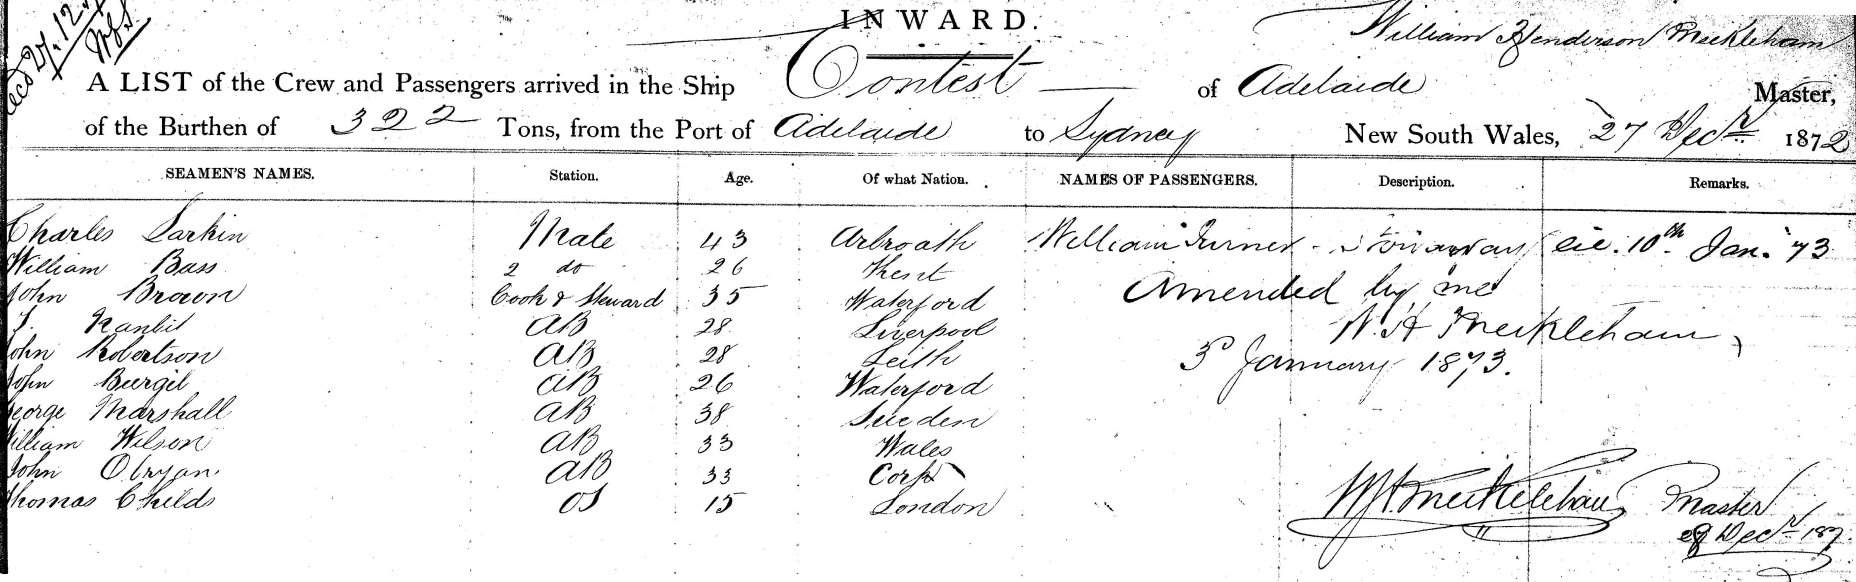 27.12.
INWARD.
William Henderson Meikleham
A LIST of the Crew and Passengers arrived in the Ship Contest of Adelaide Master,
of the Burthen of 322 Tons, from the Port of Adelaide to Sydney New South Wales, 27 Decr 1872
SEAMEN'S NAMES. Station. Age. Of what Nation. NAMES OF PASSENGERS. Description. Remarks.
Charles Larkin Mate 43 Arbroath William Turner - Stowaway 10th Jan. 73
William Bass 2 do 26 Kent
Amended by me
John Brown Cook & Steward 35 Waterford
W. H Meikleham
AB 28 Liverpool
John Robertson AB 28 Leith
3d January 1873.
John Burgil AB 26 Waterford
George Marshall AB 38 Sweden
William Wilson AB 33 Wales
John Obryan AB 33 Cork
Thomas Childs OS 15 London
W H Meikleham Master
Decr 187